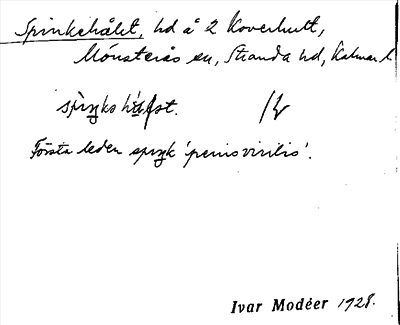 Spinkehålet, hd å 2 Koverhult,
Mönsterås sn, Stranda hd, Kalmar l.
spiŋkə
Första leden spiŋk 'penis virilis'.
Ivar Modéer 1928.